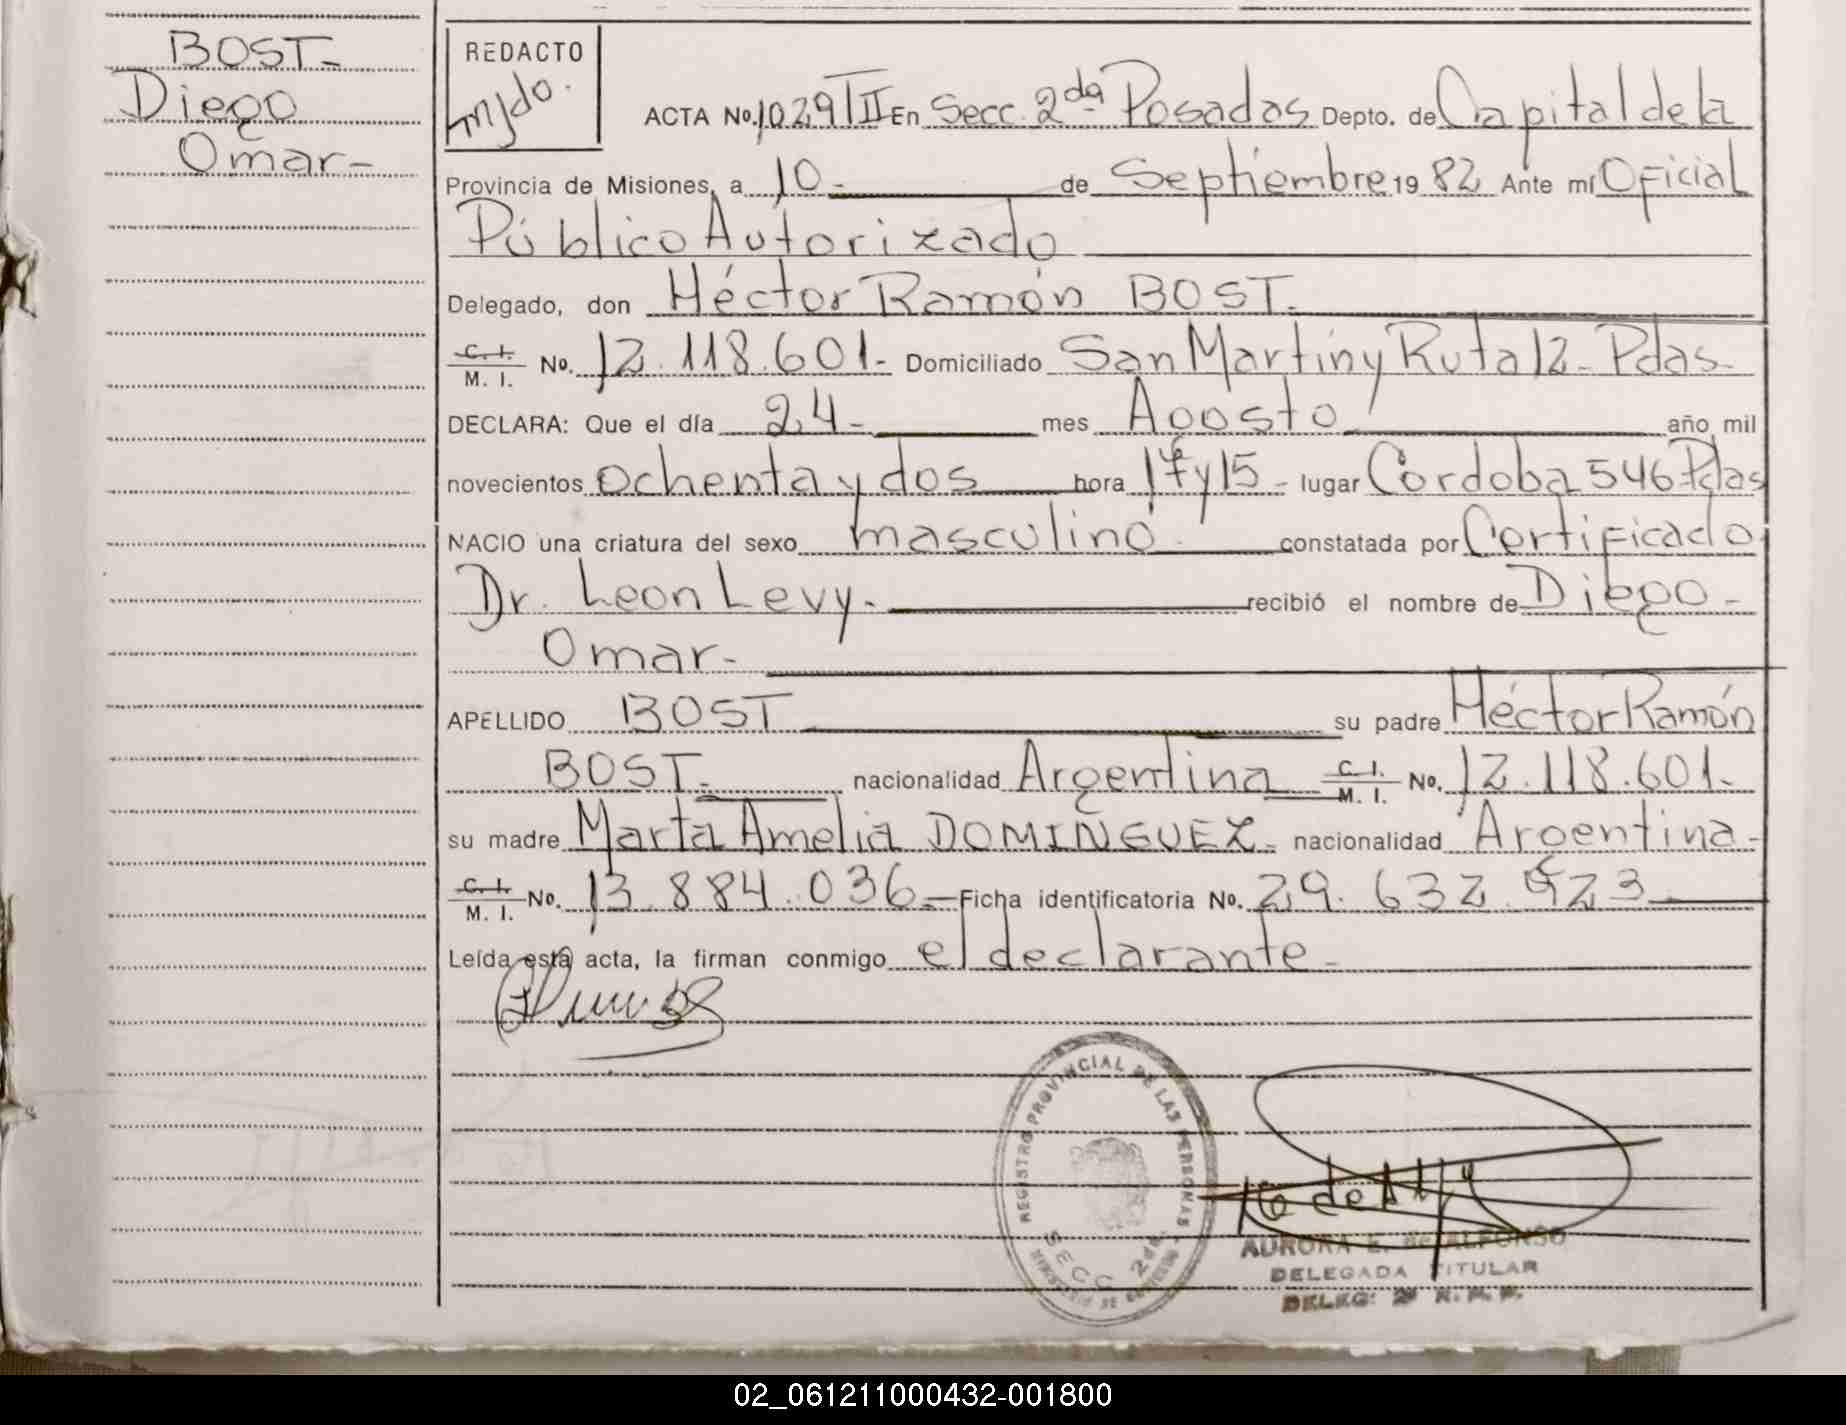 BOST-
Diego
Omar-
REDACTO
mjdo.
ACTA No. 1029 TII En Secc. 2da Posadas Depto. de Capital de la
Provincia de Misiones, a 10- de Septiembre 19 82 Ante mí Oficial
Público Autorizado
Delegado, don Héctor Ramón BOST.
C. I. M. I. No. 12.118.601- Domiciliado San Martin y Ruta 12- Pdas-
DECLARA: Que el día 24- mes Agosto año mil
novecientos ochenta y dos hora 17 y 15- lugar Córdoba 546 Pdas
NACIO una criatura del sexo masculino constatada por Certificado
Dr. Leon Levy- recibió el nombre de Diego-
Omar-
APELLIDO BOST su padre Héctor Ramón
BOST- nacionalidad Argentina C. I. M. I. No. 12.118.601-
su madre Marta Amelia DOMINGUEZ- nacionalidad Argentina-
C. I. M. I. No. 13.884.036- Ficha identificatoria No. 29.632.523
Leída esta acta, la firman conmigo el declarante-
REGISTRO PROVINCIAL DE LAS PERSONAS
SECC 2da.
AURORA E. de ALFONSO
DELEGADA TITULAR
DELEG: 2ª R. P. P.
02_061211000432-001800